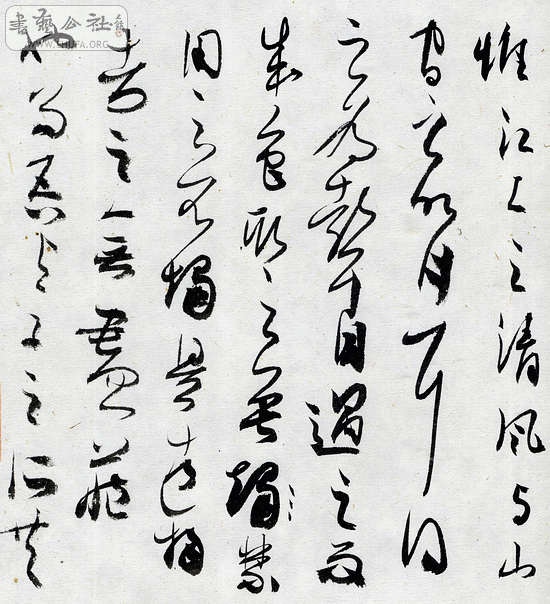 惟江上之清風与山
間之明月耳得
之為聲目遇之而
成色取之無竭禁
用之不竭是造物
者之無盡藏
也而吾与子之所共
書藝公社